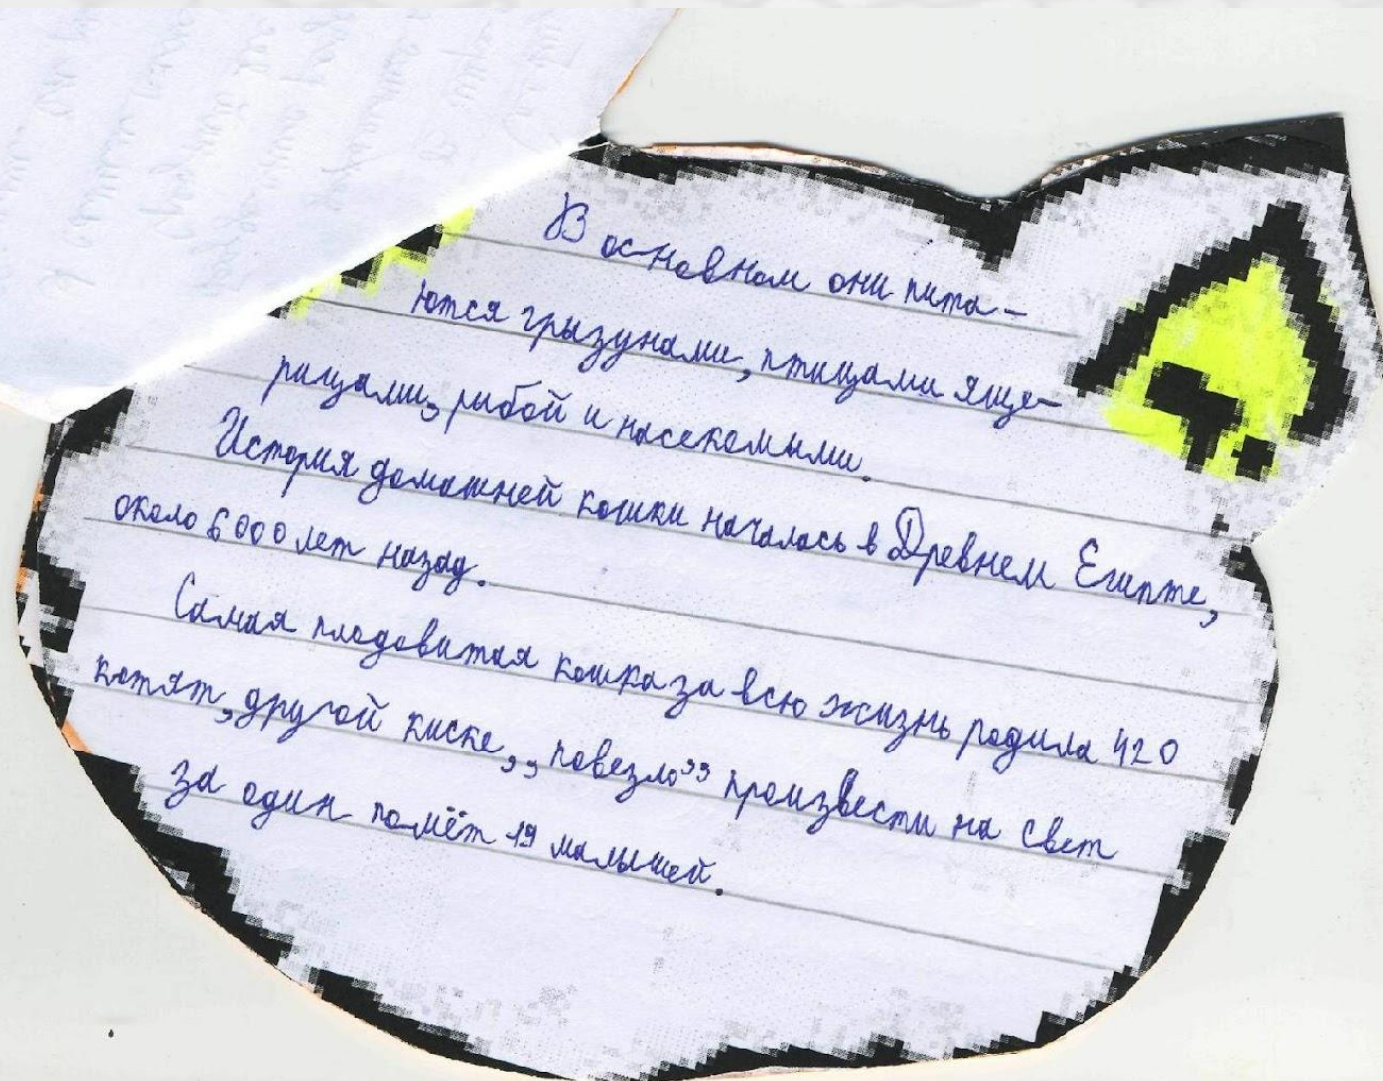 В основном они пита-
ются грызунами, птицами яще-
рицами, рыбой и насекомыми.
История домашней кошки началась в Древнем Египте,
около 6000 лет назад.
Самая плодовитая кошка за всю жизнь родила 420
котят, другой киске ,,повезло" произвести на свет
за один помёт 19 малышей.